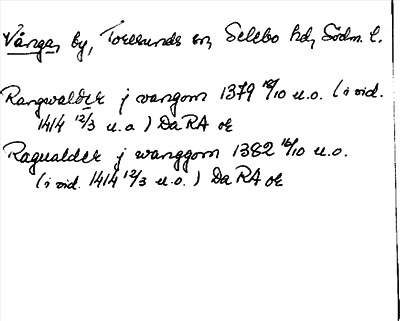 Vånga, by, Toresunds sn, Selebo hd, Södm. l.
Rangwalder j vangom 1379 18/10 u.o. (i vid.
1414 12/3 u.o.) Da RA or
Ragualder j wanggom 1382 16/10 u.o.
(i vid. 1414 12/3 u.o.) Da RA or